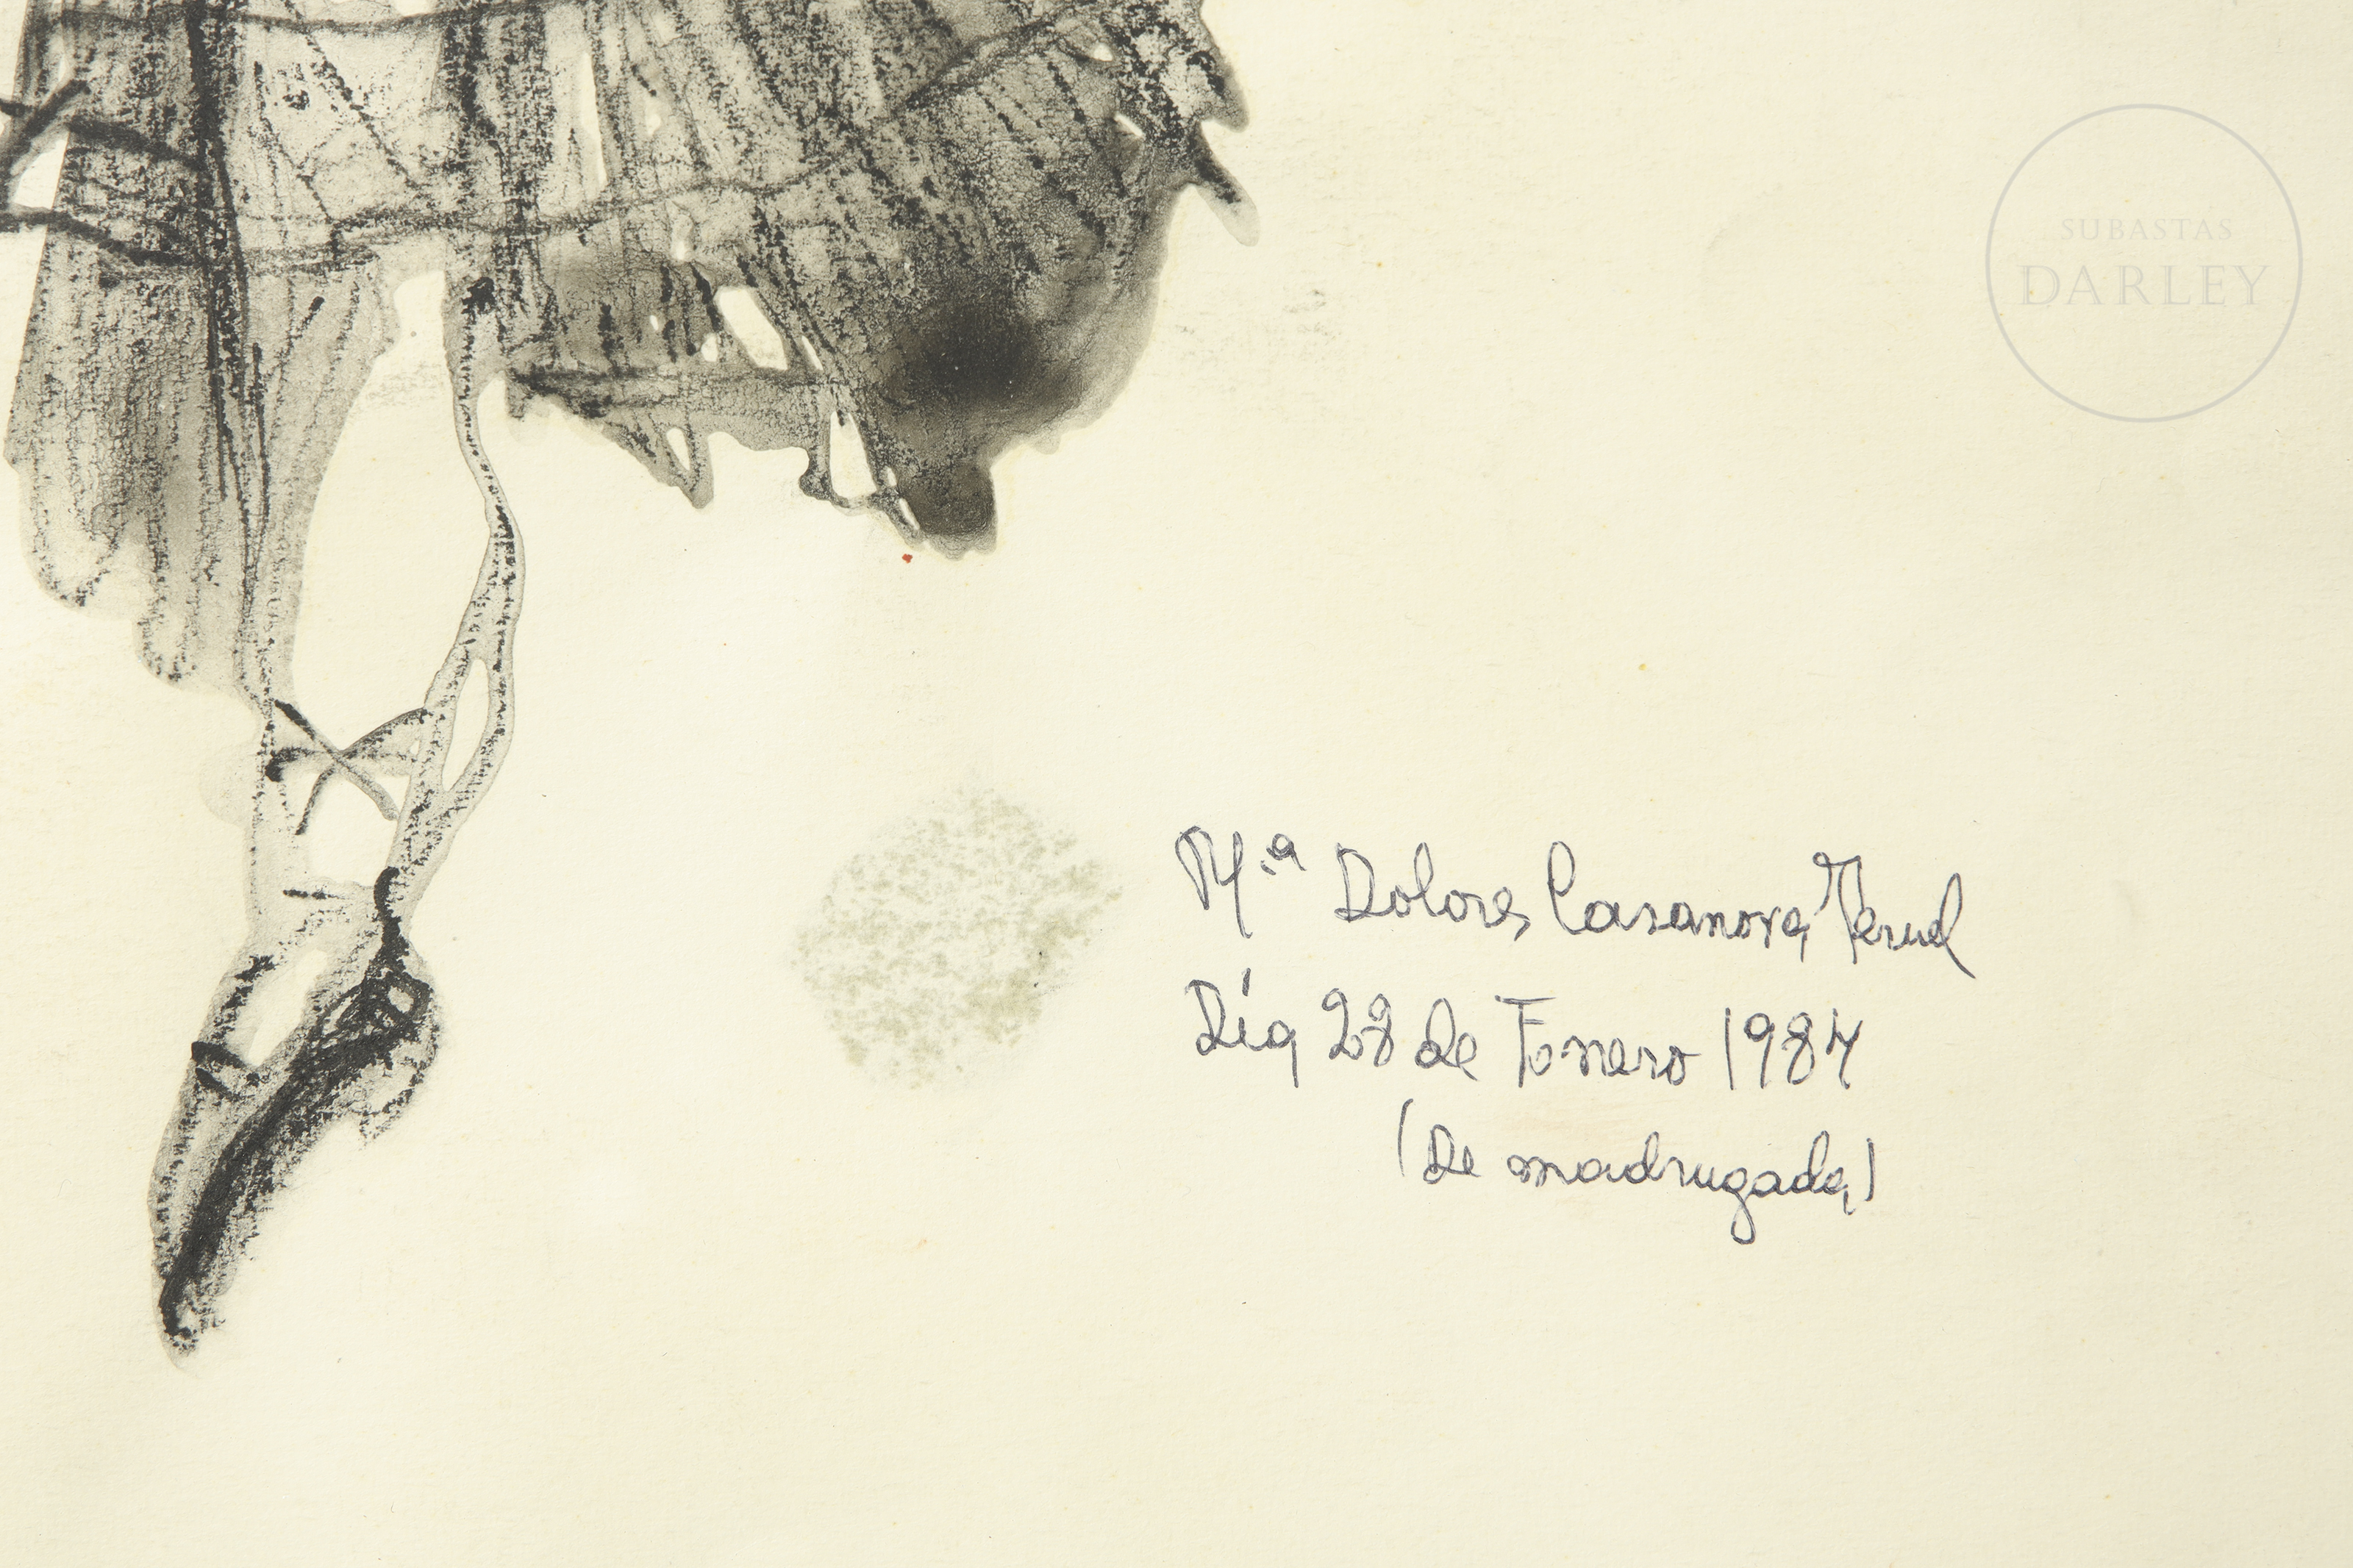 SUBASTAS
DARLEY
M.ª Dolores Casanova Teruel
Día 28 de 1984
(De madrugada)